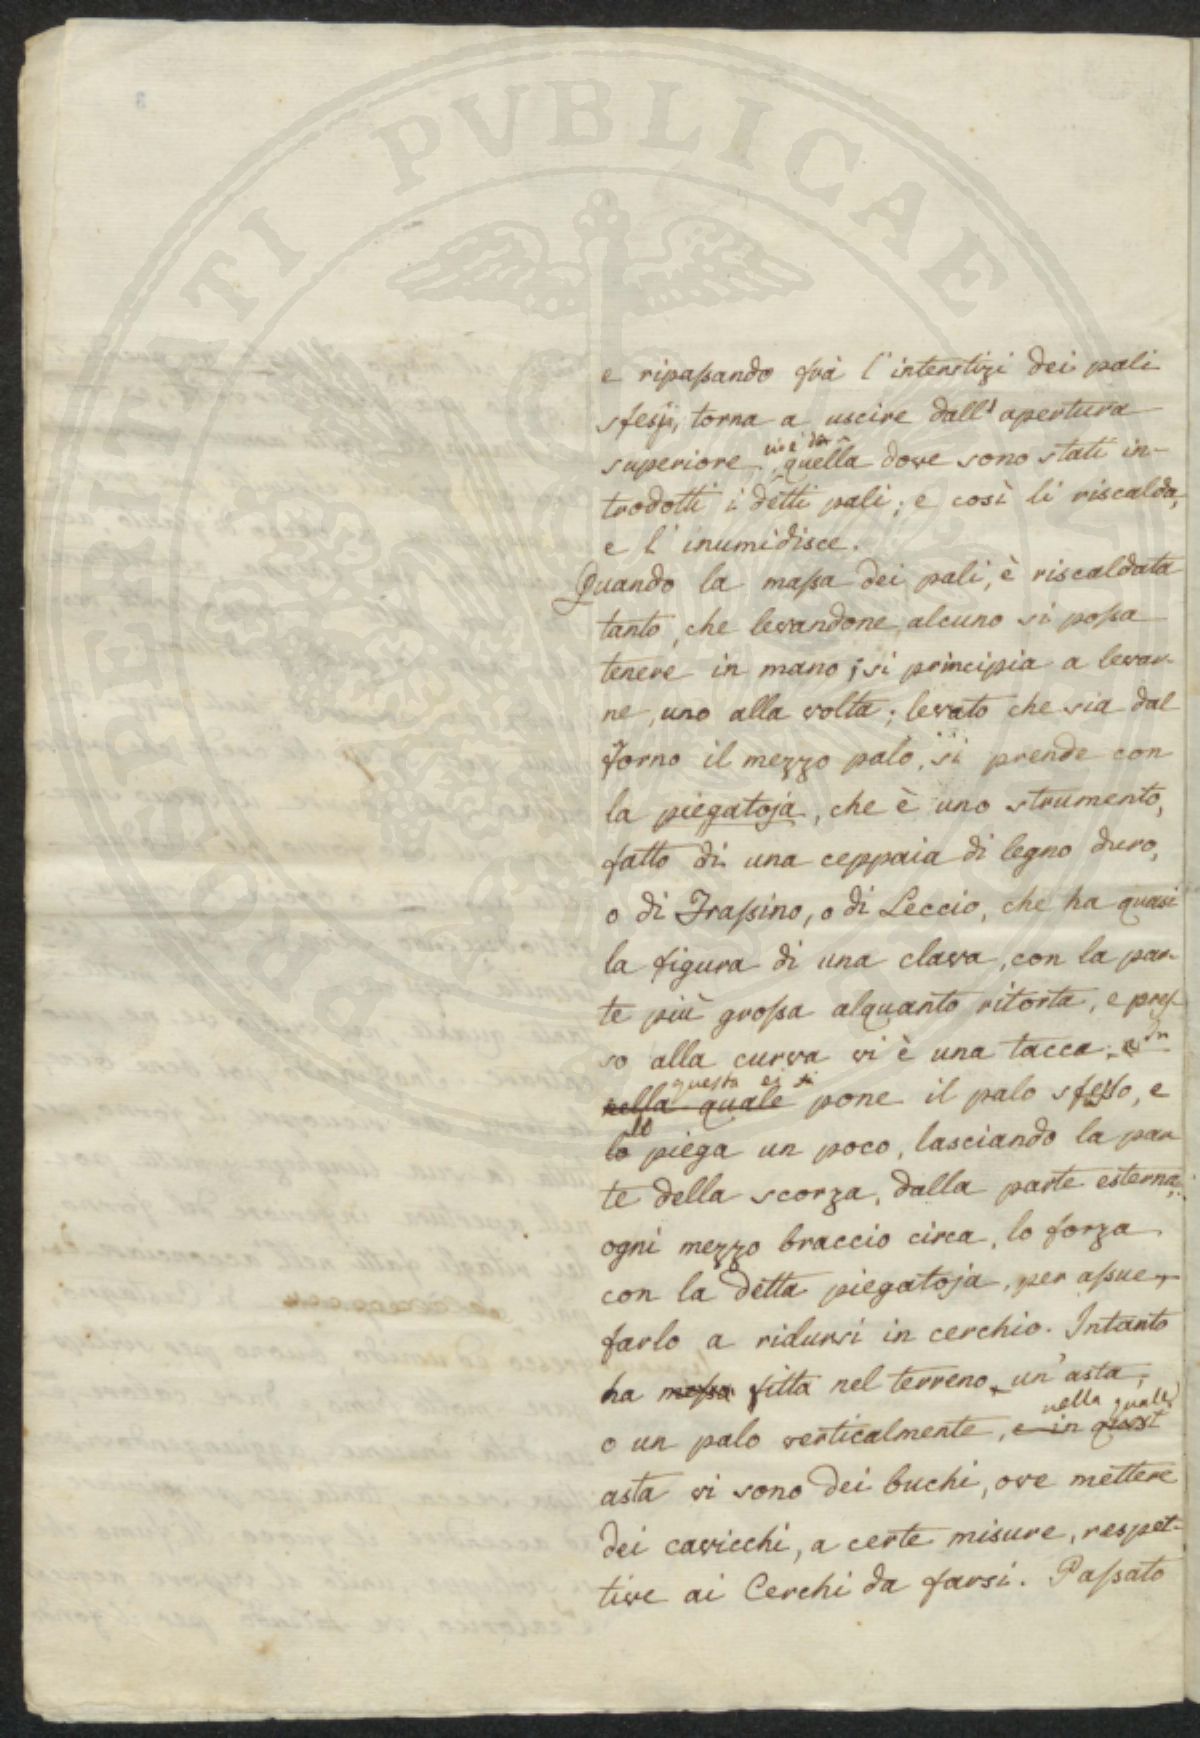 PROSPERITATI PVBLICAE AVGENDAE
e ripaſsando frà l'interstizj dei pali
sfesi, torna a uscire dall'apertura
superiore, cioè da quella dove sono stati in-
trodotti i detti pali; e così li riscalda,
e l'inumidisce.
Quando la maſsa dei pali, è riscaldata
tanto, che levandone, alcuno si poſsa
tenere in mano; si principia a levar-
ne, uno alla volta; levato che sia dal
Forno il mezzo palo, si prende con
la piegatoja, che è uno strumento,
fatto di una ceppaia di legno duro,
o di Fraſsino, o di Leccio, che ha quasi
la figura di una clava, con la par-
te più groſsa alquanto ritorta, e preſ-
so alla curva vi è una tacca; e in
questa ei si
nella quale pone il palo sfeſso, e
lo piega un poco, lasciando la par-
te della scorza, dalla parte esterna;
ogni mezzo braccio circa, lo forza
con la detta piegatoja, per aſsue-
farlo a ridursi in cerchio. Intanto
ha meſsa fitta nel terreno un'asta,
nella quale
o un palo verticalmente, e in quest
asta vi sono dei buchi, ove mettere
dei cavicchi, a certe misure, respet-
tive ai Cerchi da farsi. Paſsato